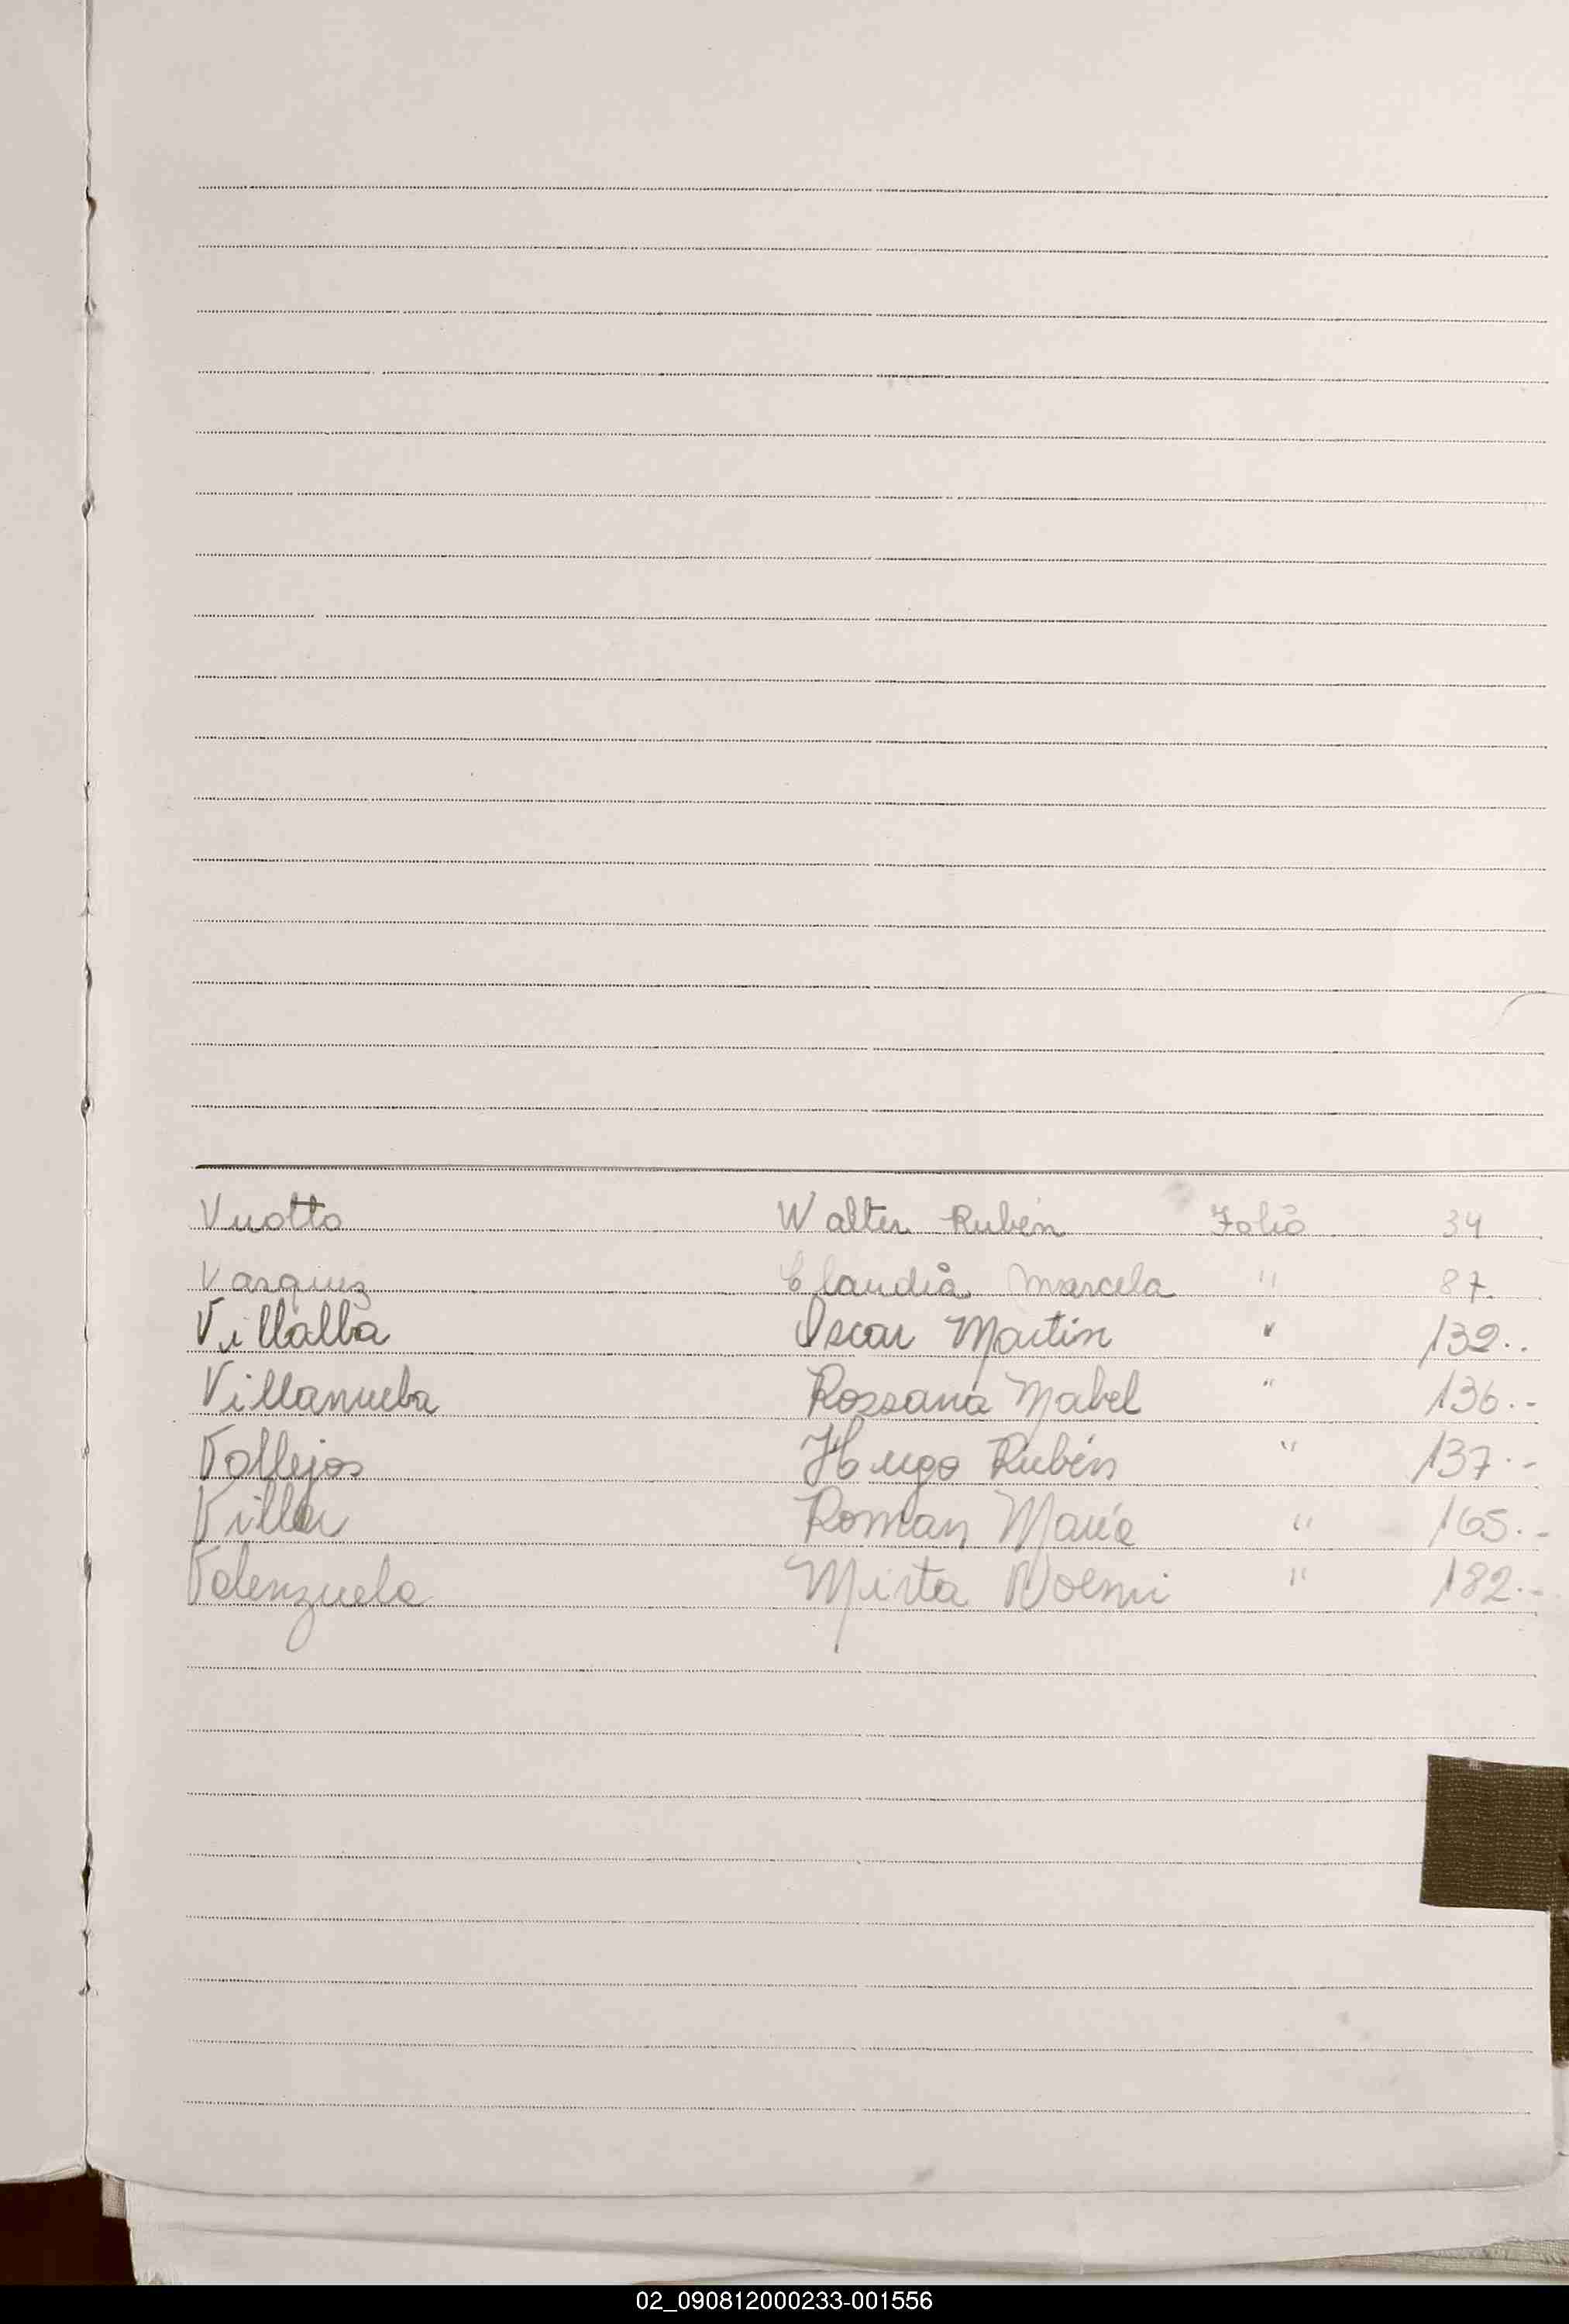 Vuotto Walter Rubén Folio 34
Vasquez Claudia Marcela " 87.
Villalba Oscar Martin " 132..
Villanueba Rossana Mabel " 136.-
Vallejos Hugo Rubén " 137.-
Villar Roman María " 165.-
Valenzuela Mirta Noemi " 182.-
02_090812000233-001556